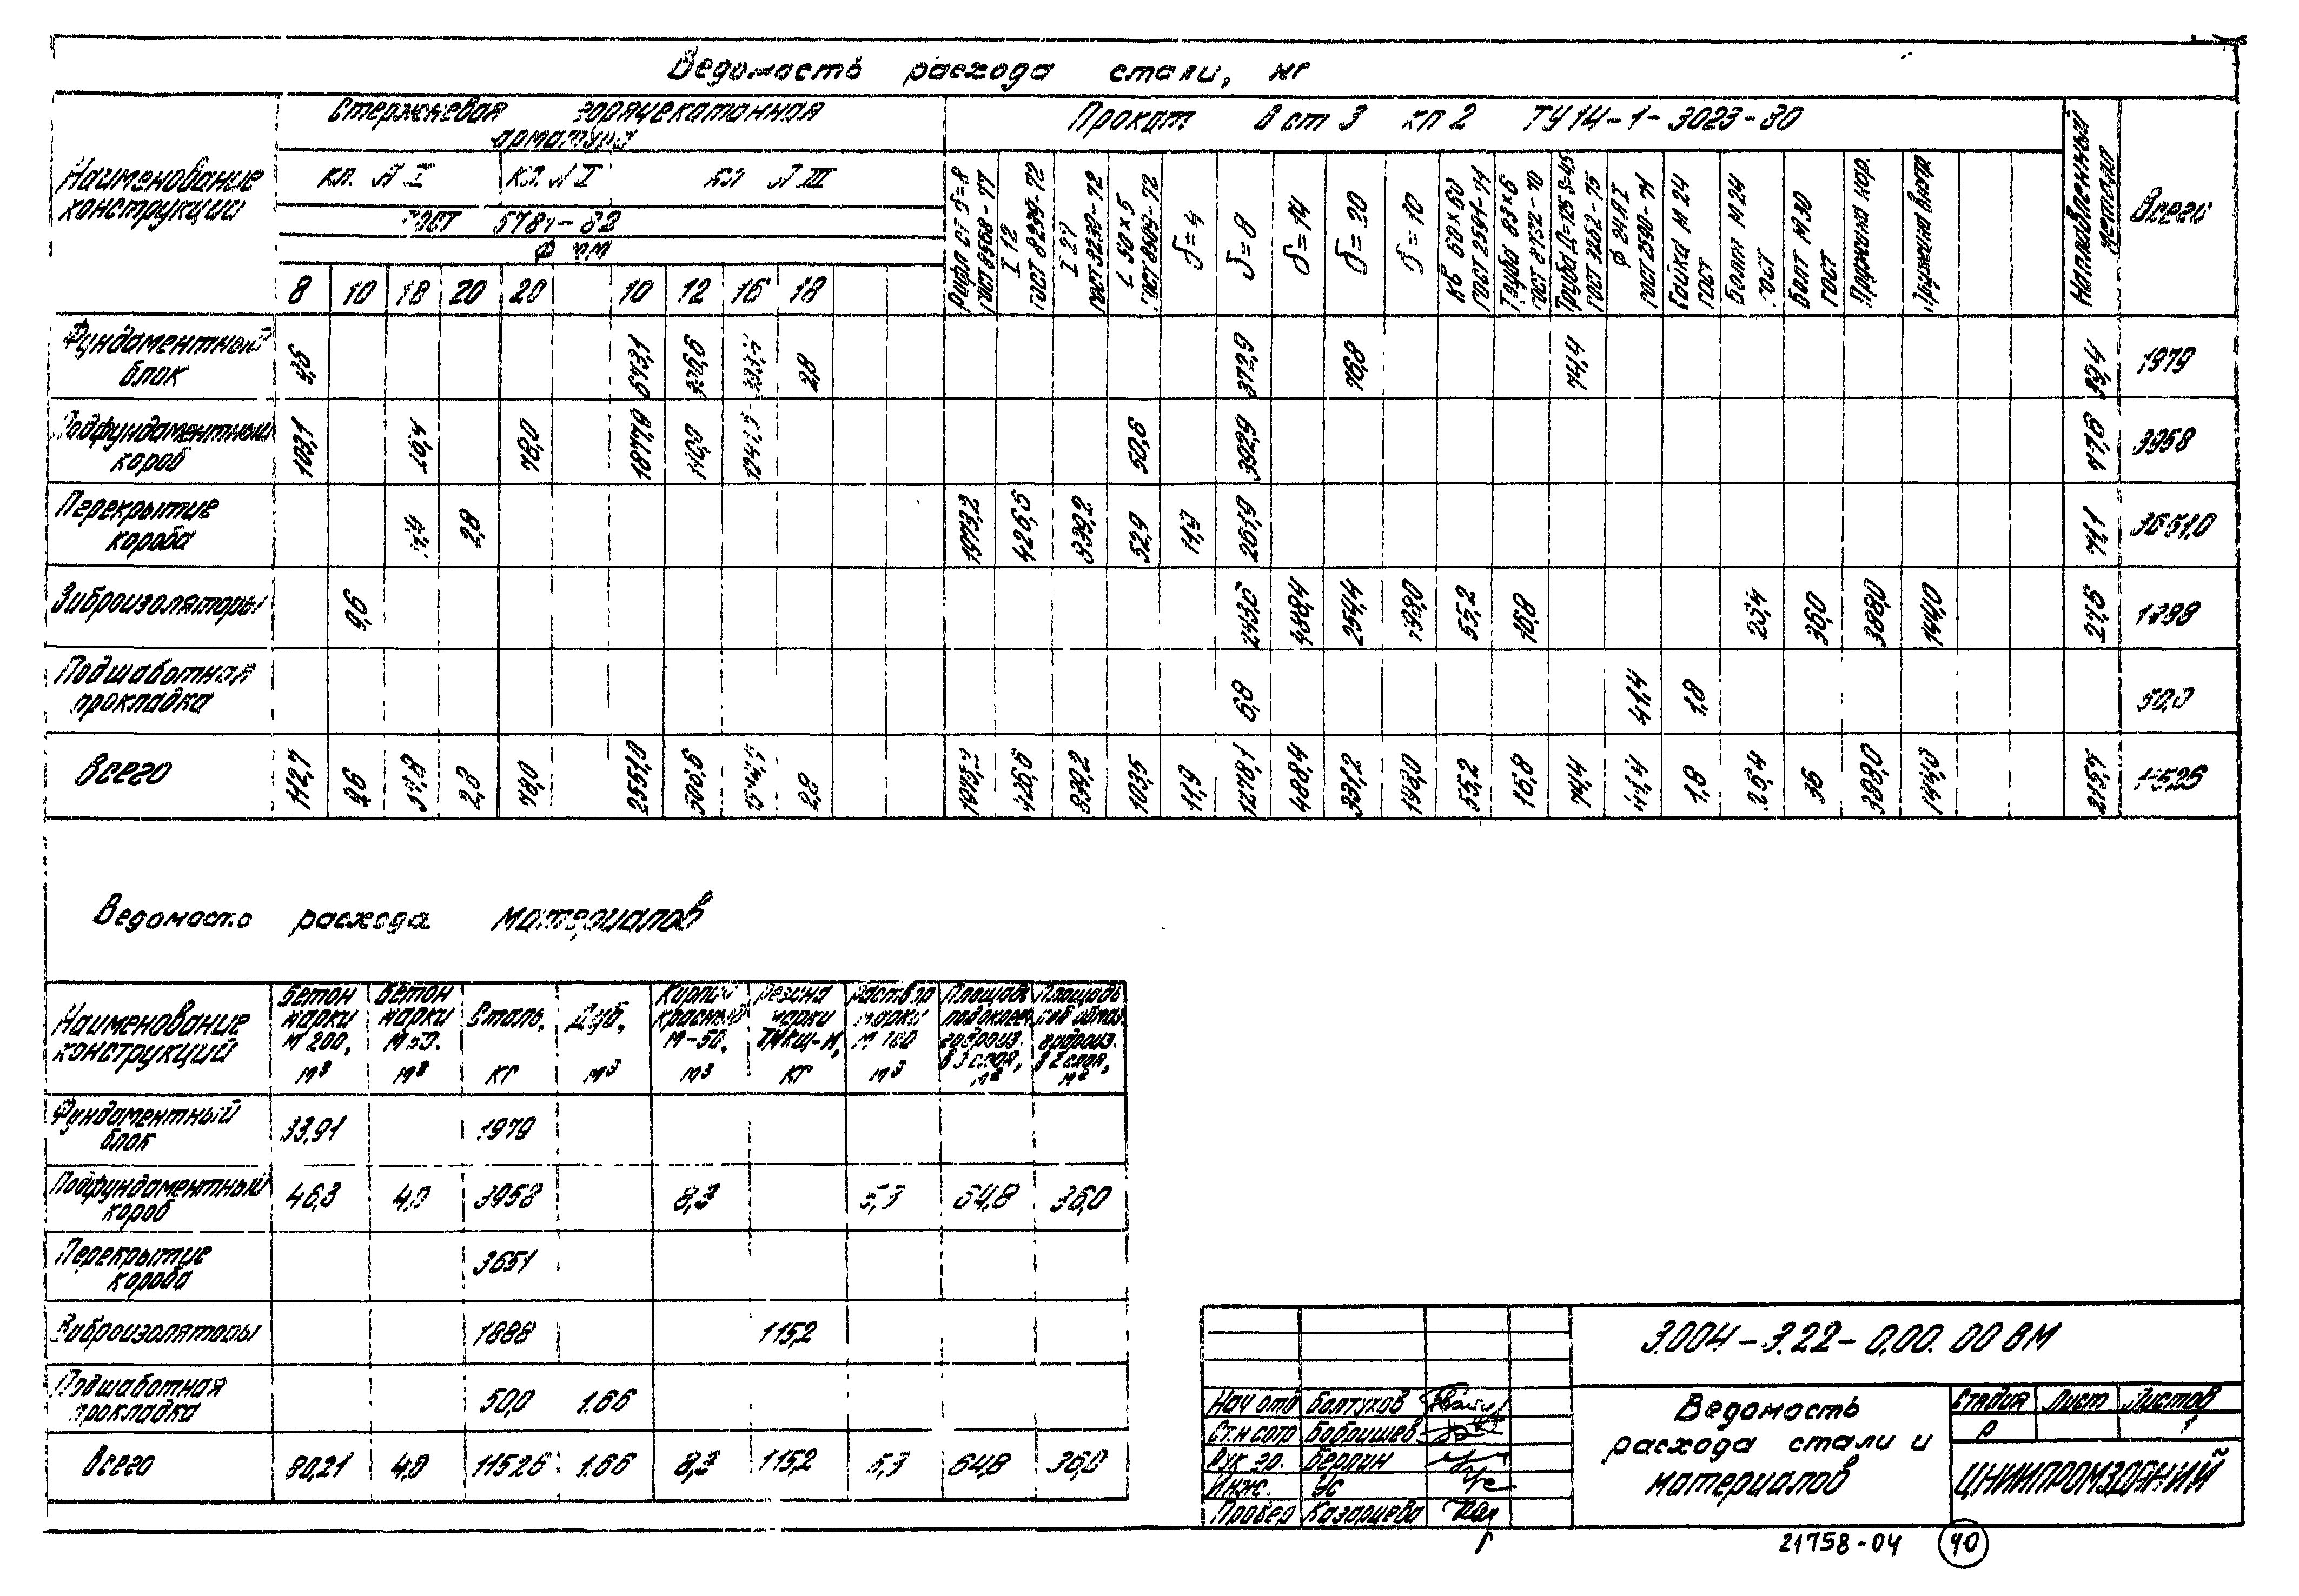 Ведомость расхода стали, кг
Наименование конструкции
Стержневая горячекатанная арматура
Прокат В ст 3 кп 2 ТУ 14-1-3023-80
Наплавленный металл
Всего
кл. А I
кл. А I
кл А III
ГОСТ 5781-82
Ф мм
8 10 18 20 20 10 12 16 18
Рифл ст δ=8 ГОСТ 8568-77
I 12 ГОСТ 8239-72
I 27 ГОСТ 8239-72
L 50×5 ГОСТ 8509-72
δ=4
δ=8
δ=14
δ=30
δ=10
Кв 60×60 ГОСТ 2591-71
Труба 83×6 ГОСТ 8732-70
Труба Д=125 δ=4,5 ГОСТ 3262-75
Ф 24 А I ГОСТ 2590-71
Гайка М 24 ГОСТ
Болт М24 ГОСТ
Болт М30 ГОСТ
Пружина нар.
Пружина внутр.
Фундаментный блок 9,6 673,1 2,8 372,9 76,8 74,4 39,4 1979
Подфундаментный короб 103,1 78,0 1877,9 140,0 50,6 392,9 77,8 3958
Перекрытие короба 2,8 1973,2 426,5 839,2 52,9 11,9 261,9 71,1 3651,0
Виброизоляторы 9,6 243,6 488,4 254,4 55,2 16,8 25,4 36,0 388,0 144,0 27,6 1888
Подшаботная прокладка 6,8 41,4 1,8 50,0
Всего 112,7 9,6 2,8 78,0 2551,0 2,8 1973,2 426,5 839,2 103,5 11,9 1278,1 488,4 331,2 198,0 55,2 16,8 74,4 41,4 1,8 25,4 36 388,0 144,0 215,7 11526
Ведомость расхода материалов
Наименование конструкций
Бетон марки М 200, м³
Бетон марки М 50. м³
Сталь, кг
Дуб, м³
Кирпич красный М-50, м³
Резина марки ТМКЩ-М, кг
Раствор марки М 100 м³
Площадь подоклееч гидроиз. в 3 слоя, м²
Площадь под обмаз. гидроиз. в 2 слоя, м²
Фундаментный блок 33,91 1979
Подфундаментный короб 46,3 4,0 3958 8,3 5,3 64,8 36,0
Перекрытие короба 3651
Виброизоляторы 1888 115,2
Подшаботная прокладка 50,0 1.66
Всего 80,21 4,0 11526 1.66 8,3 115,2 5,3 64,8 36,0
3.004-3.22-0.00.00 ВМ
Нач отд Болтухов
Ст.н сотр Бобоишев
Рук гр. Берлин
Инж. Ус
Провер Казарцева
Ведомость расхода стали и материалов
Стадия Лист Листов
Р 1
ЦНИИПРОМЗДАНИЙ
21758-04 40